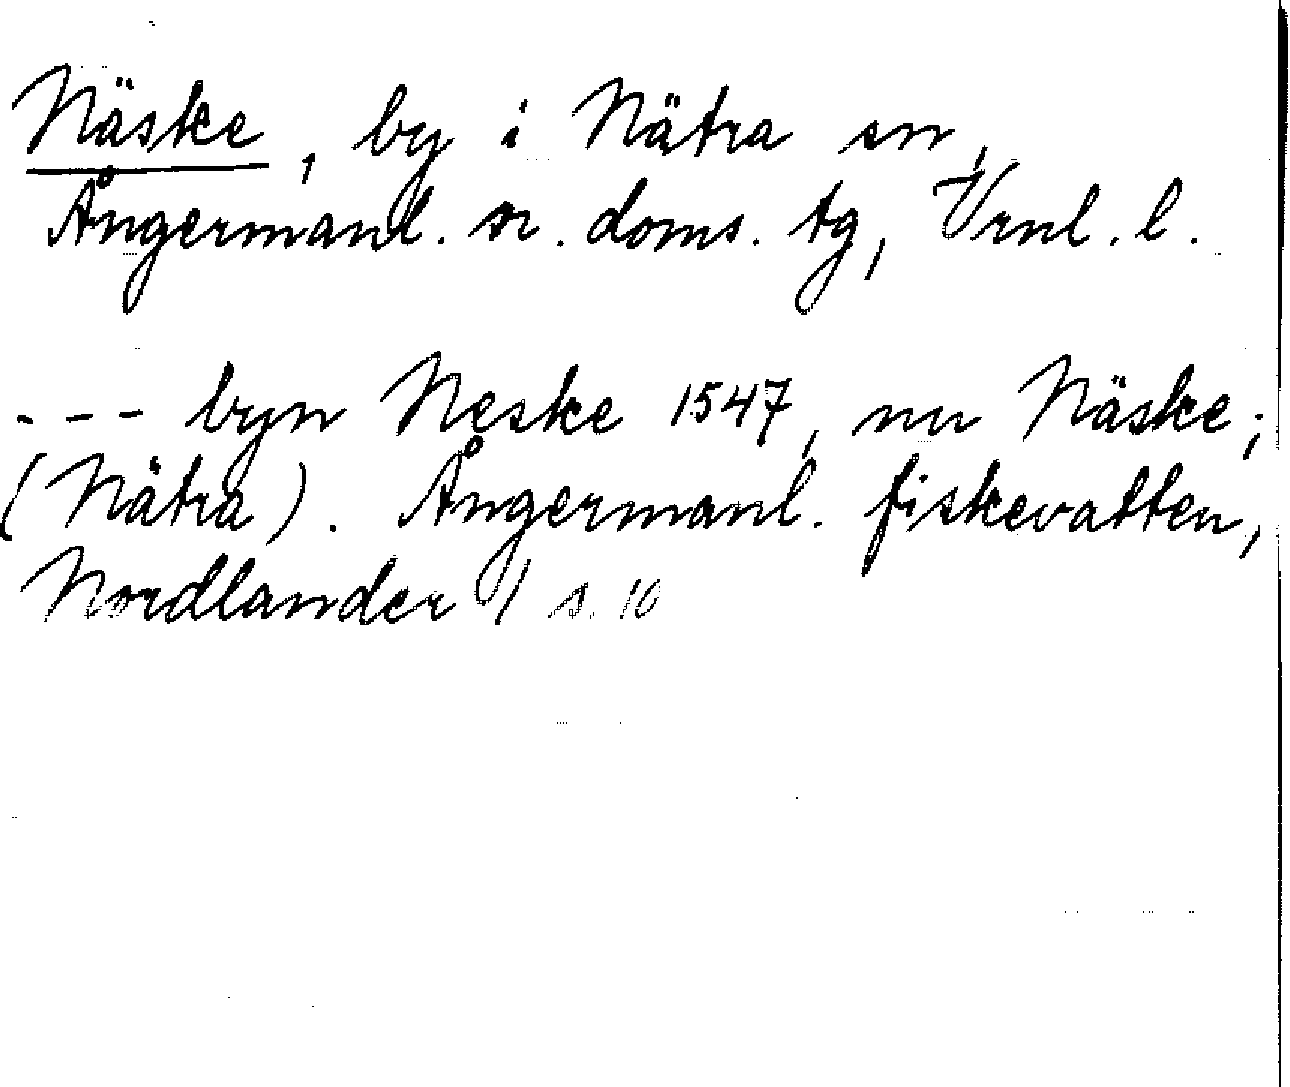 Näske, by i Nätra sn,
Ångermanl. n. doms. tg, Vrnl. l.
--- byn Neske 1547, nu Näske;
(Nätra). Ångermanl. fiskevatten,
Nordlander / s. 10